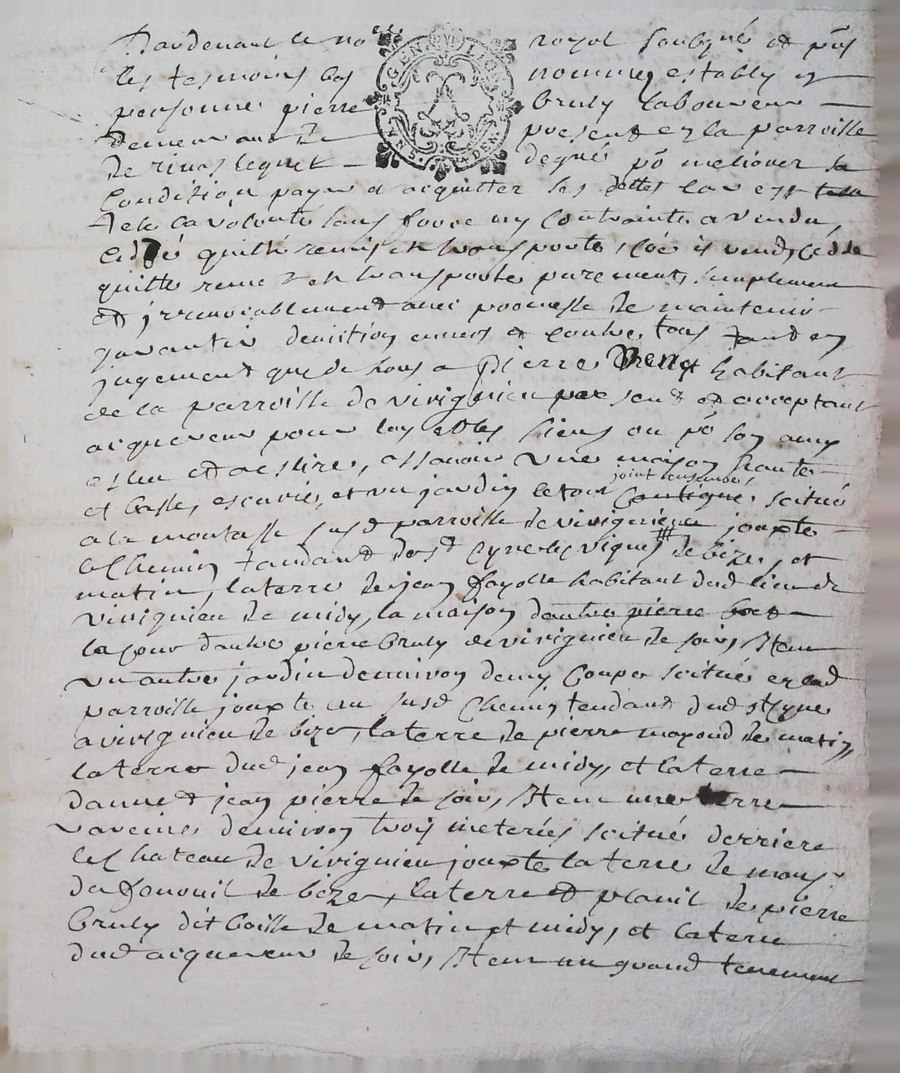 Pardevant le no royal soubsigné et pnts
les tesmoins bas nommez estably en
personne pierre bruly laboureur
demeurant de present en la parroisse
de rivas lequel degré po meliorer sa
Condition payer et acquitter ses debtes
de sa volonté sans force ny Contrainte a vendu
cedé quitté remis et transporté, vend, cedde
quitte remet et transporte purement, simplement
et jrrevocablement avec promesse de maintenir
garantir deviction envers et contre tous tant en
jugement que de hors a pierre habitant
de la parroisse de virignieu present et acceptant
acquereur pour luy et les siens ou po son amy
esleu et a eslire, assavoir une maison haute
et basse, escurie, et un jardin le tout joint ensemble, Contigue scitué
a la susd parroisse de virignieu jouxte
le Chemin tandant de st Cyr les vignes de bize, et
matin, la terre de jean fayolle habitant dud lieu de
virignieu de midy, la maison dautre pierre
la cour dautre pierre bruly de virignieu de soir, Item
un autre jardin denviron demy Coupe scitué en lad
parroisse jouxte un susd Chemin tendant dud st Cyre
a virignieu de bize, la terre de pierre de matin,
la terre dud jean fayolle de midy, et la terre
jean pierre de soir, Item une terre
vareine denviron trois meterées scitué derriere
le Chateau de virignieu jouxte la terre de
de bize, la terre et de pierre
bruly dit de matin et midy, et la terre
dud acquereur de soir, Item un grand tenement
GEN LION